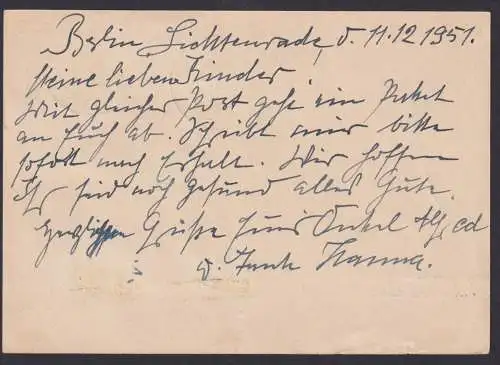 Berlin Lichtenrade, d. 11.12.1951.
Meine lieben Kinder
Mit gleicher Post geht ein Paket
an Euch ab. Schreibt mir bitte
sofort nach Erhalt. Wir hoffen
Ihr seid noch gesund alles Gute.
Herzlichen Grüße Eure Onkel Alfred
u. Tante Hanna.